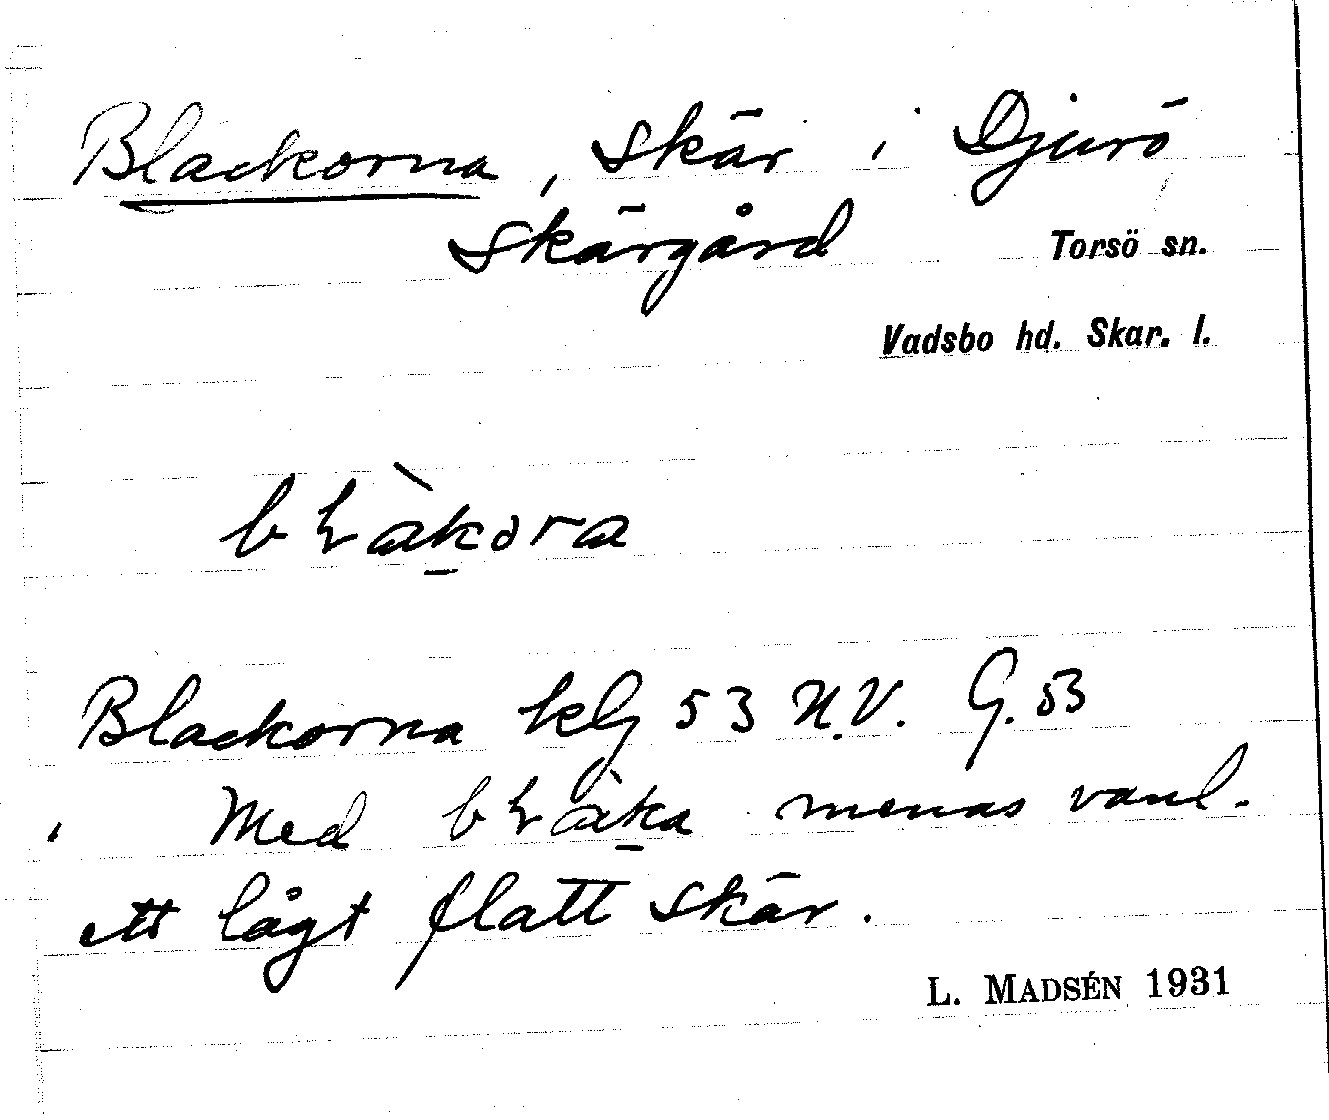 Blackorna, skär i Djurö
skärgård Torsö sn.
Vadsbo hd. Skar. l.
bɫàk̠ora
Blackorna klg 53 N.V. G. 53
Med bɫàk̠a menas vanl.
ett lågt flatt skär.
L. MADSÉN 1931